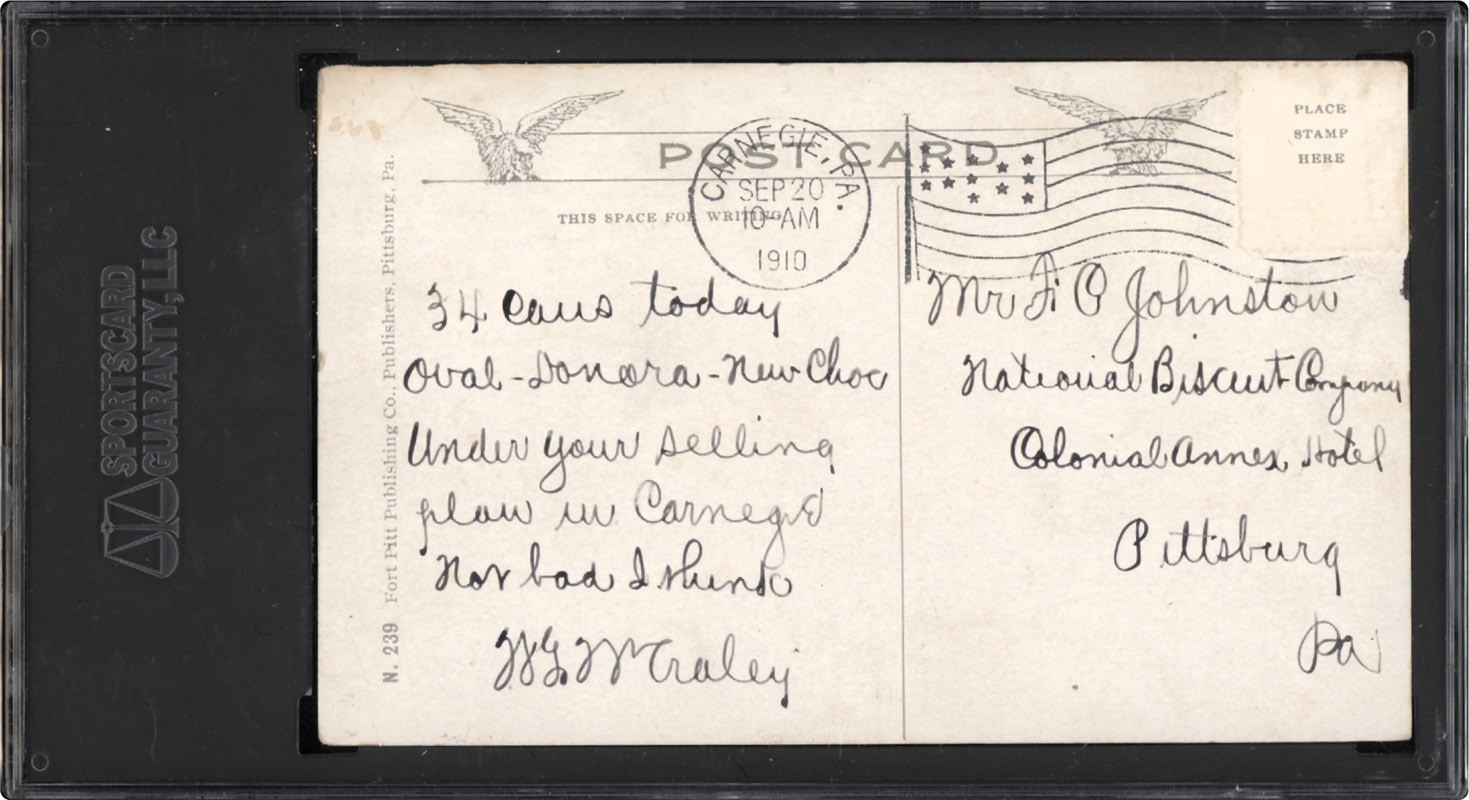 SPORTSCARD
GUARANTY, LLC
N. 239 Fort Pitt Publishing Co., Publishers, Pittsburg, Pa.
POST CARD
THIS SPACE FOR WRITING
CARNEGIE, PA.
SEP 20
10-AM
1910
PLACE
STAMP
HERE
34 cans today
Oval - Donora - New Choc
Under your selling
plan in Carnegie
Not bad I think
Mr F. O Johnston
National Biscuit Company
Colonial Annex Hotel
Pittsburg
Pa